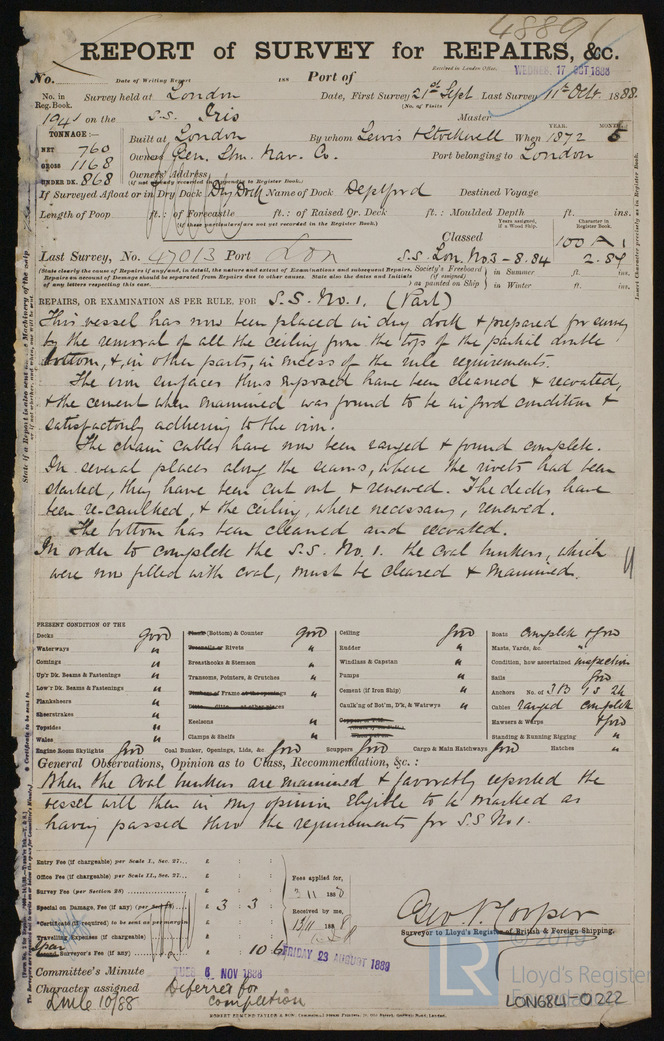 48896
REPORT of SURVEY for REPAIRS, &c.
No. Date of Writing Report 188 Port of Received in London Office, WEDNES. 17 OCT 1888
No. in Reg. Book. Survey held at London Date, First Survey 21st Sept Last Survey 11th Oct. 1888.
(No. of Visits)
on the S.S. Iris Master
TONNAGE:— Built at London By whom Lewis & Stockwell When 1872 5
YEAR. MONTH.
NET 760
GROSS 1168
UNDER DK. 868
Owners Gen. Stm. Nav. Co. Port belonging to London
Owners' Address
(if not already recorded in Appendix to Register Book.)
If Surveyed Afloat or in Dry Dock Dry Dock Name of Dock Deptford Destined Voyage
Length of Poop ft. : of Forecastle ft. : of Raised Qr. Deck ft. : Moulded Depth ft. ins.
(if these particulars are not yet recorded in the Register Book.)
Classed 100 A 1
Years assigned, if a Wood Ship. Character in Register Book.
Last Survey, No. 47013 Port Lon S.S. Lon. No 3 - 8.84 2.84
(State clearly the cause of Repairs if any; and, in detail, the nature and extent of Examinations and subsequent Repairs.
Repairs on account of Damage should be separated from Repairs due to other causes. State also the dates and initials of any letters respecting this case.
Society's Freeboard (if assigned) as painted on Ship in Summer ft. ins.
in Winter ft. ins.
REPAIRS, OR EXAMINATION AS PER RULE, FOR S.S. No. 1. (Part)
This vessel has now been placed in dry dock & prepared for survey
by the removal of all the ceiling from the top of the partial double
bottom, &, in other parts, in excess of the rule requirements.
The iron surfaces thus exposed have been cleaned & recoated,
& the cement when examined was found to be in good condition &
satisfactorily adhering to the iron.
The chain cables have now been ranged & found complete.
In several places along the seams, where the rivets had been
started, they have been cut out & renewed. The decks have
been re-caulked, & the ceiling, where necessary, renewed.
The bottom has been cleaned and recoated.
In order to complete the S.S. No. 1. the coal bunkers, which
were now filled with coal, must be cleared & examined.
PRESENT CONDITION OF THE
Decks good
Waterways "
Comings "
Up'r Dk. Beams & Fastenings "
Low'r Dk. Beams & Fastenings "
Planksheers "
Sheerstrakes "
Topsides "
Wales "
Engine Room Skylights good
Plank (Bottom) & Counter good
Treenails or Rivets "
Breasthooks & Stemson "
Transoms, Pointers, & Crutches "
Timbers of Frame at the openings "
Keelsons "
Clamps & Shelfs "
Coal Bunker, Openings, Lids, &c good
Ceiling good
Rudder "
Windlass & Capstan "
Pumps "
Cement (if Iron Ship) "
Caulk'g of Bot'm, D'k, & Watrwys "
Scuppers good Cargo & Main Hatchways good Hatches "
Boats complete & good
Masts, Yards, &c. "
Condition, how ascertained inspection
Sails good
Anchors No. of 3B 1S 2K
Cables ranged complete
Hawsers & Warps & good
Standing & Running Rigging "
General Observations, Opinion as to Class, Recommendation, &c. :
When the coal bunkers are examined & favorably reported the
vessel will then in my opinion eligible to be marked as
having passed thro the requirements for S.S. No 1.
Entry Fee (if chargeable) per Scale I., Sec. 27... £ : :
Office Fee (if chargeable) per Scale II., Sec. 27... £ : :
Survey Fee (per Section 28) £ : :
Special on Damage, Fee (if any) (per Sec. 28) £ 3 : 3 :
*Certificate (if required) to be sent as per margin
Travelling Expenses (if chargeable) £ : :
Surveyor's Fee (if any) £ : 10 6
Fees applied for,
3/11 1888
Received by me,
13/11 1888
FRIDAY 23 AUGUST 1889
Geo. P. Cooper
Surveyor to Lloyd's Register of British & Foreign Shipping.
Committee's Minute TUES. 6 NOV 1888
Character assigned Deferred for
completion
LMC 10/88
© 2019
LR
Lloyd's Register
LON684-0222